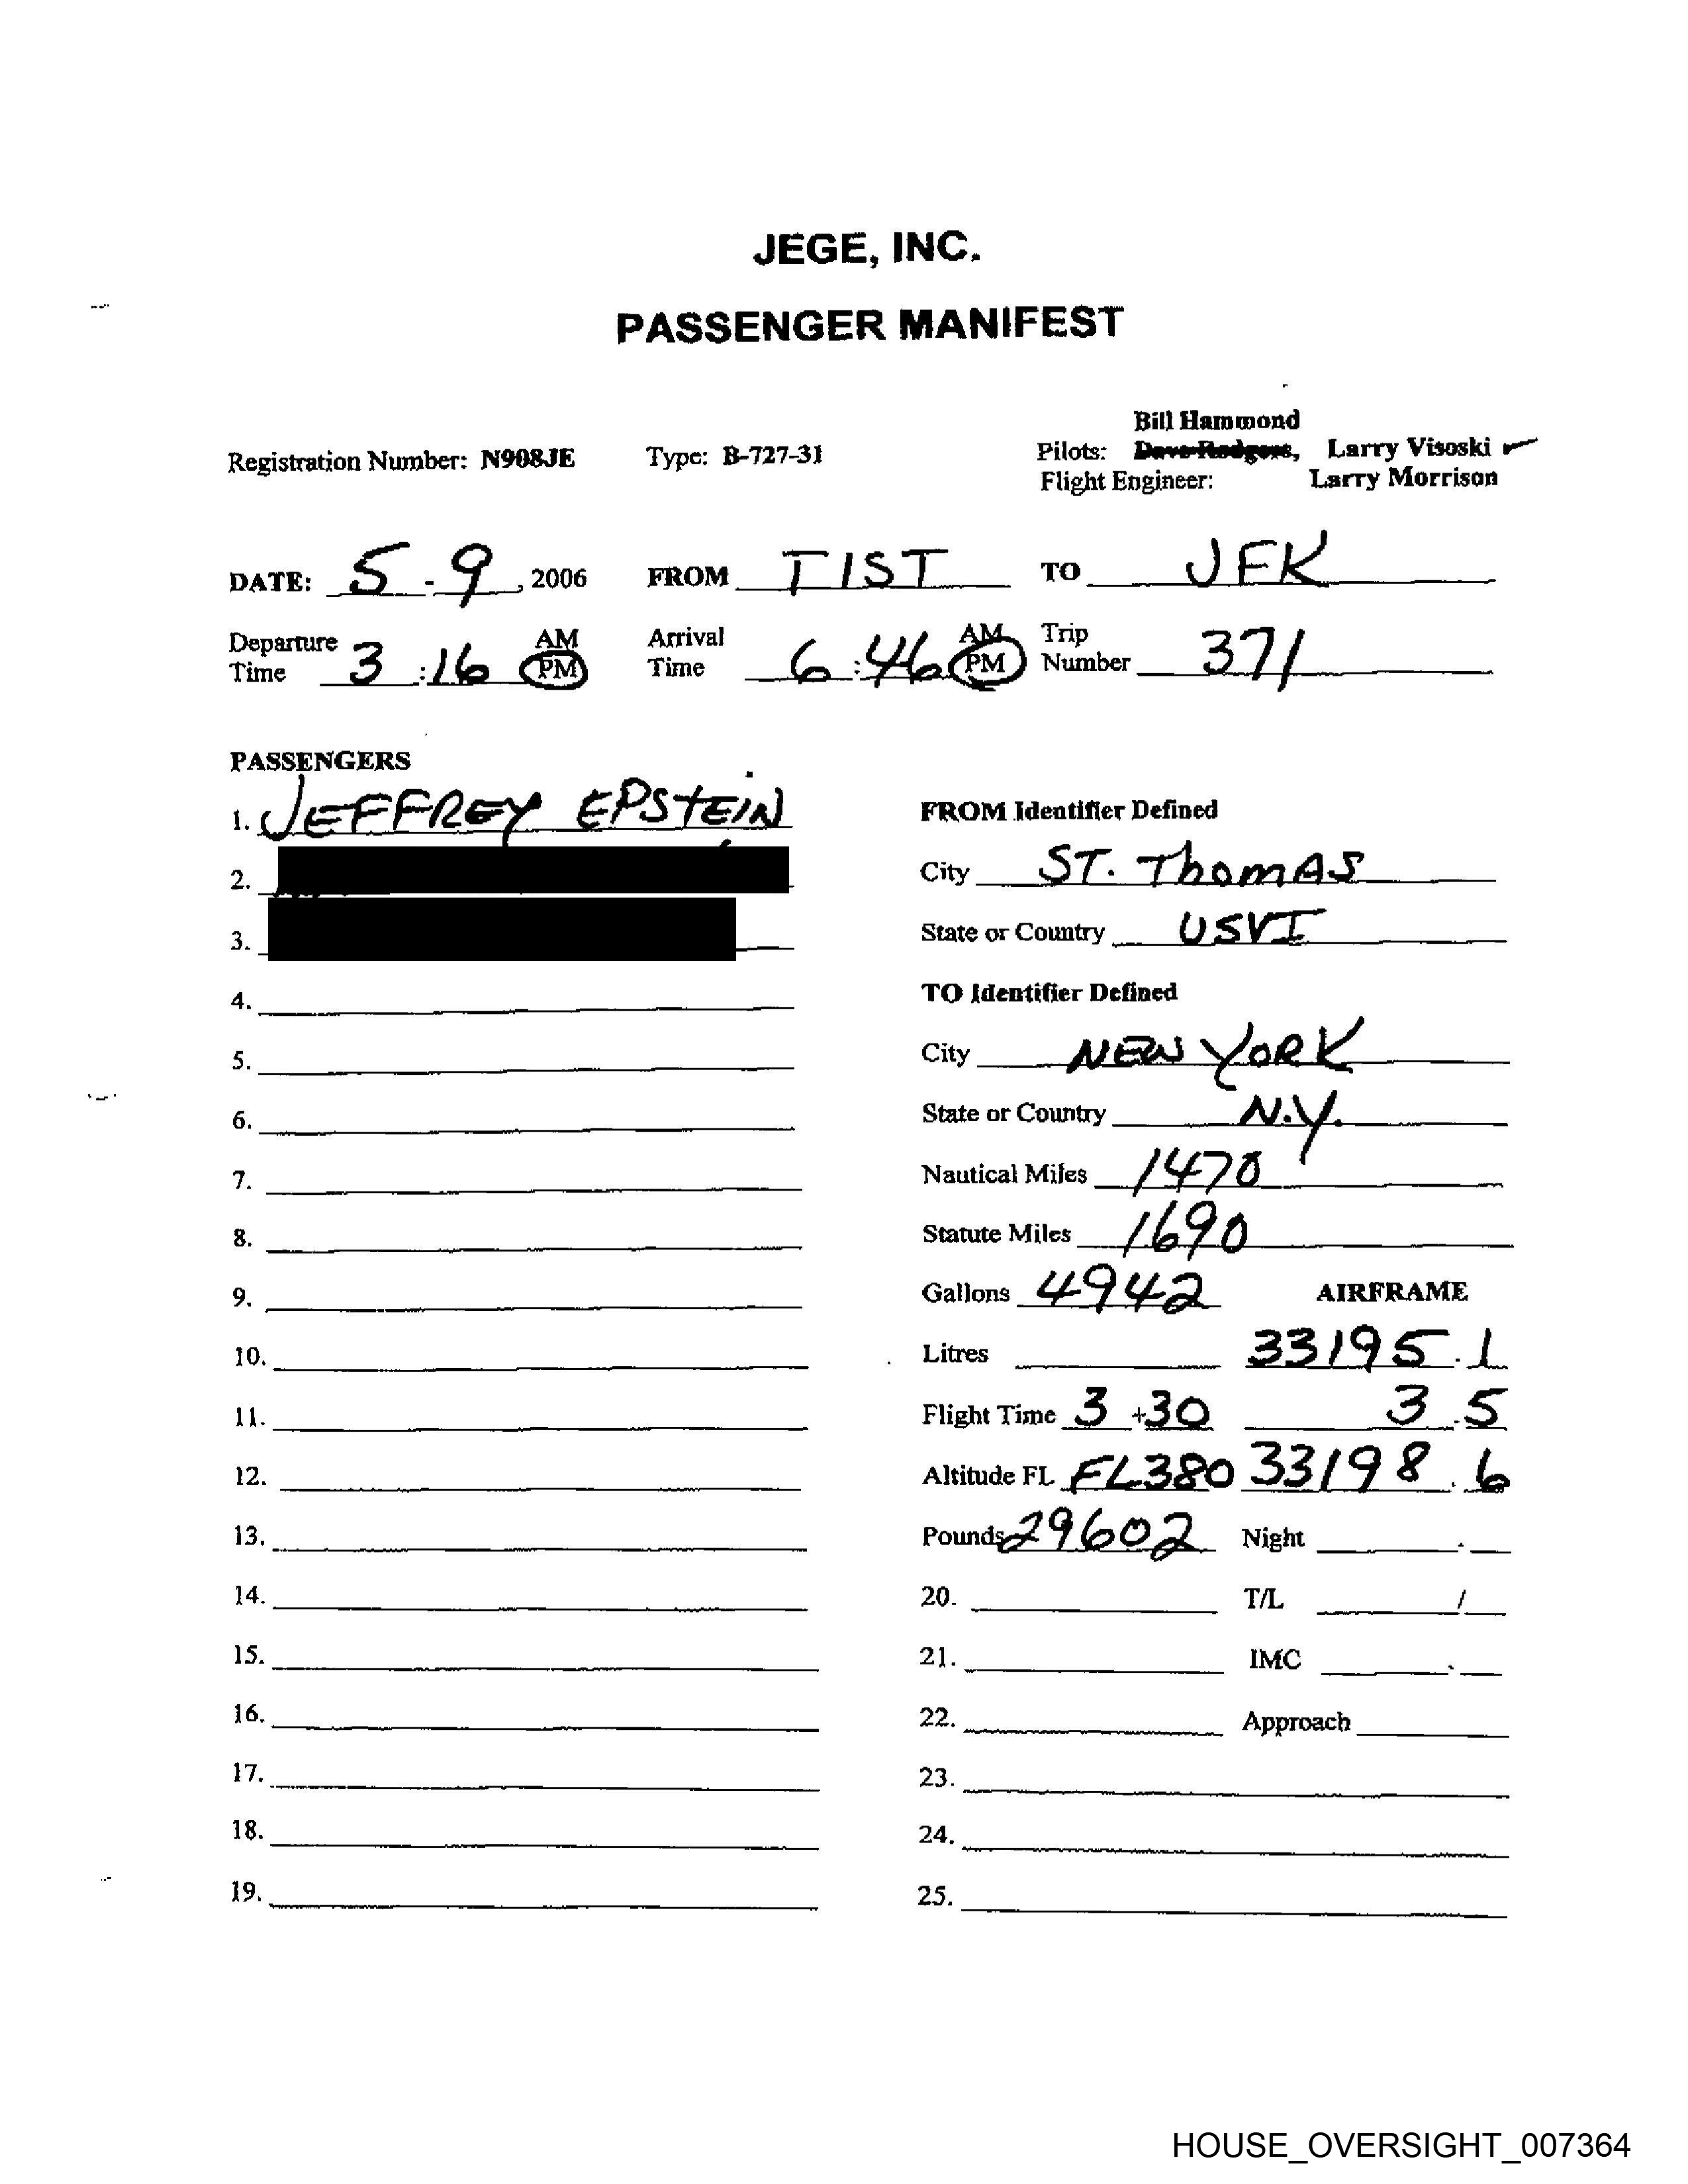 JEGE, INC.
PASSENGER MANIFEST
Bill Hammond
Registration Number: N908JE Type: B-727-31 Pilots: Dave Rodgers, Larry Visoski
Flight Engineer: Larry Morrison
DATE: 5-9, 2006 FROM TIST TO JFK
Departure Time 3:16 AM PM Arrival Time 6:46 AM PM Trip Number 371
PASSENGERS
1. JEFFREY EPSTEIN
2.
3.
4.
5.
6.
7.
8.
9.
10.
11.
12.
13.
14.
15.
16.
17.
18.
19.
FROM Identifier Defined
City ST. ThomAS
State or Country USVI
TO Identifier Defined
City NEW YORK
State or Country N.Y.
Nautical Miles 1470
Statute Miles 1690
Gallons 4942 AIRFRAME
Litres 33195.1
Flight Time 3+30 3.5
Altitude FL FL380 33198.6
Pounds 29602 Night .
20. T/L /
21. IMC .
22. Approach
23.
24.
25.
HOUSE_OVERSIGHT_007364